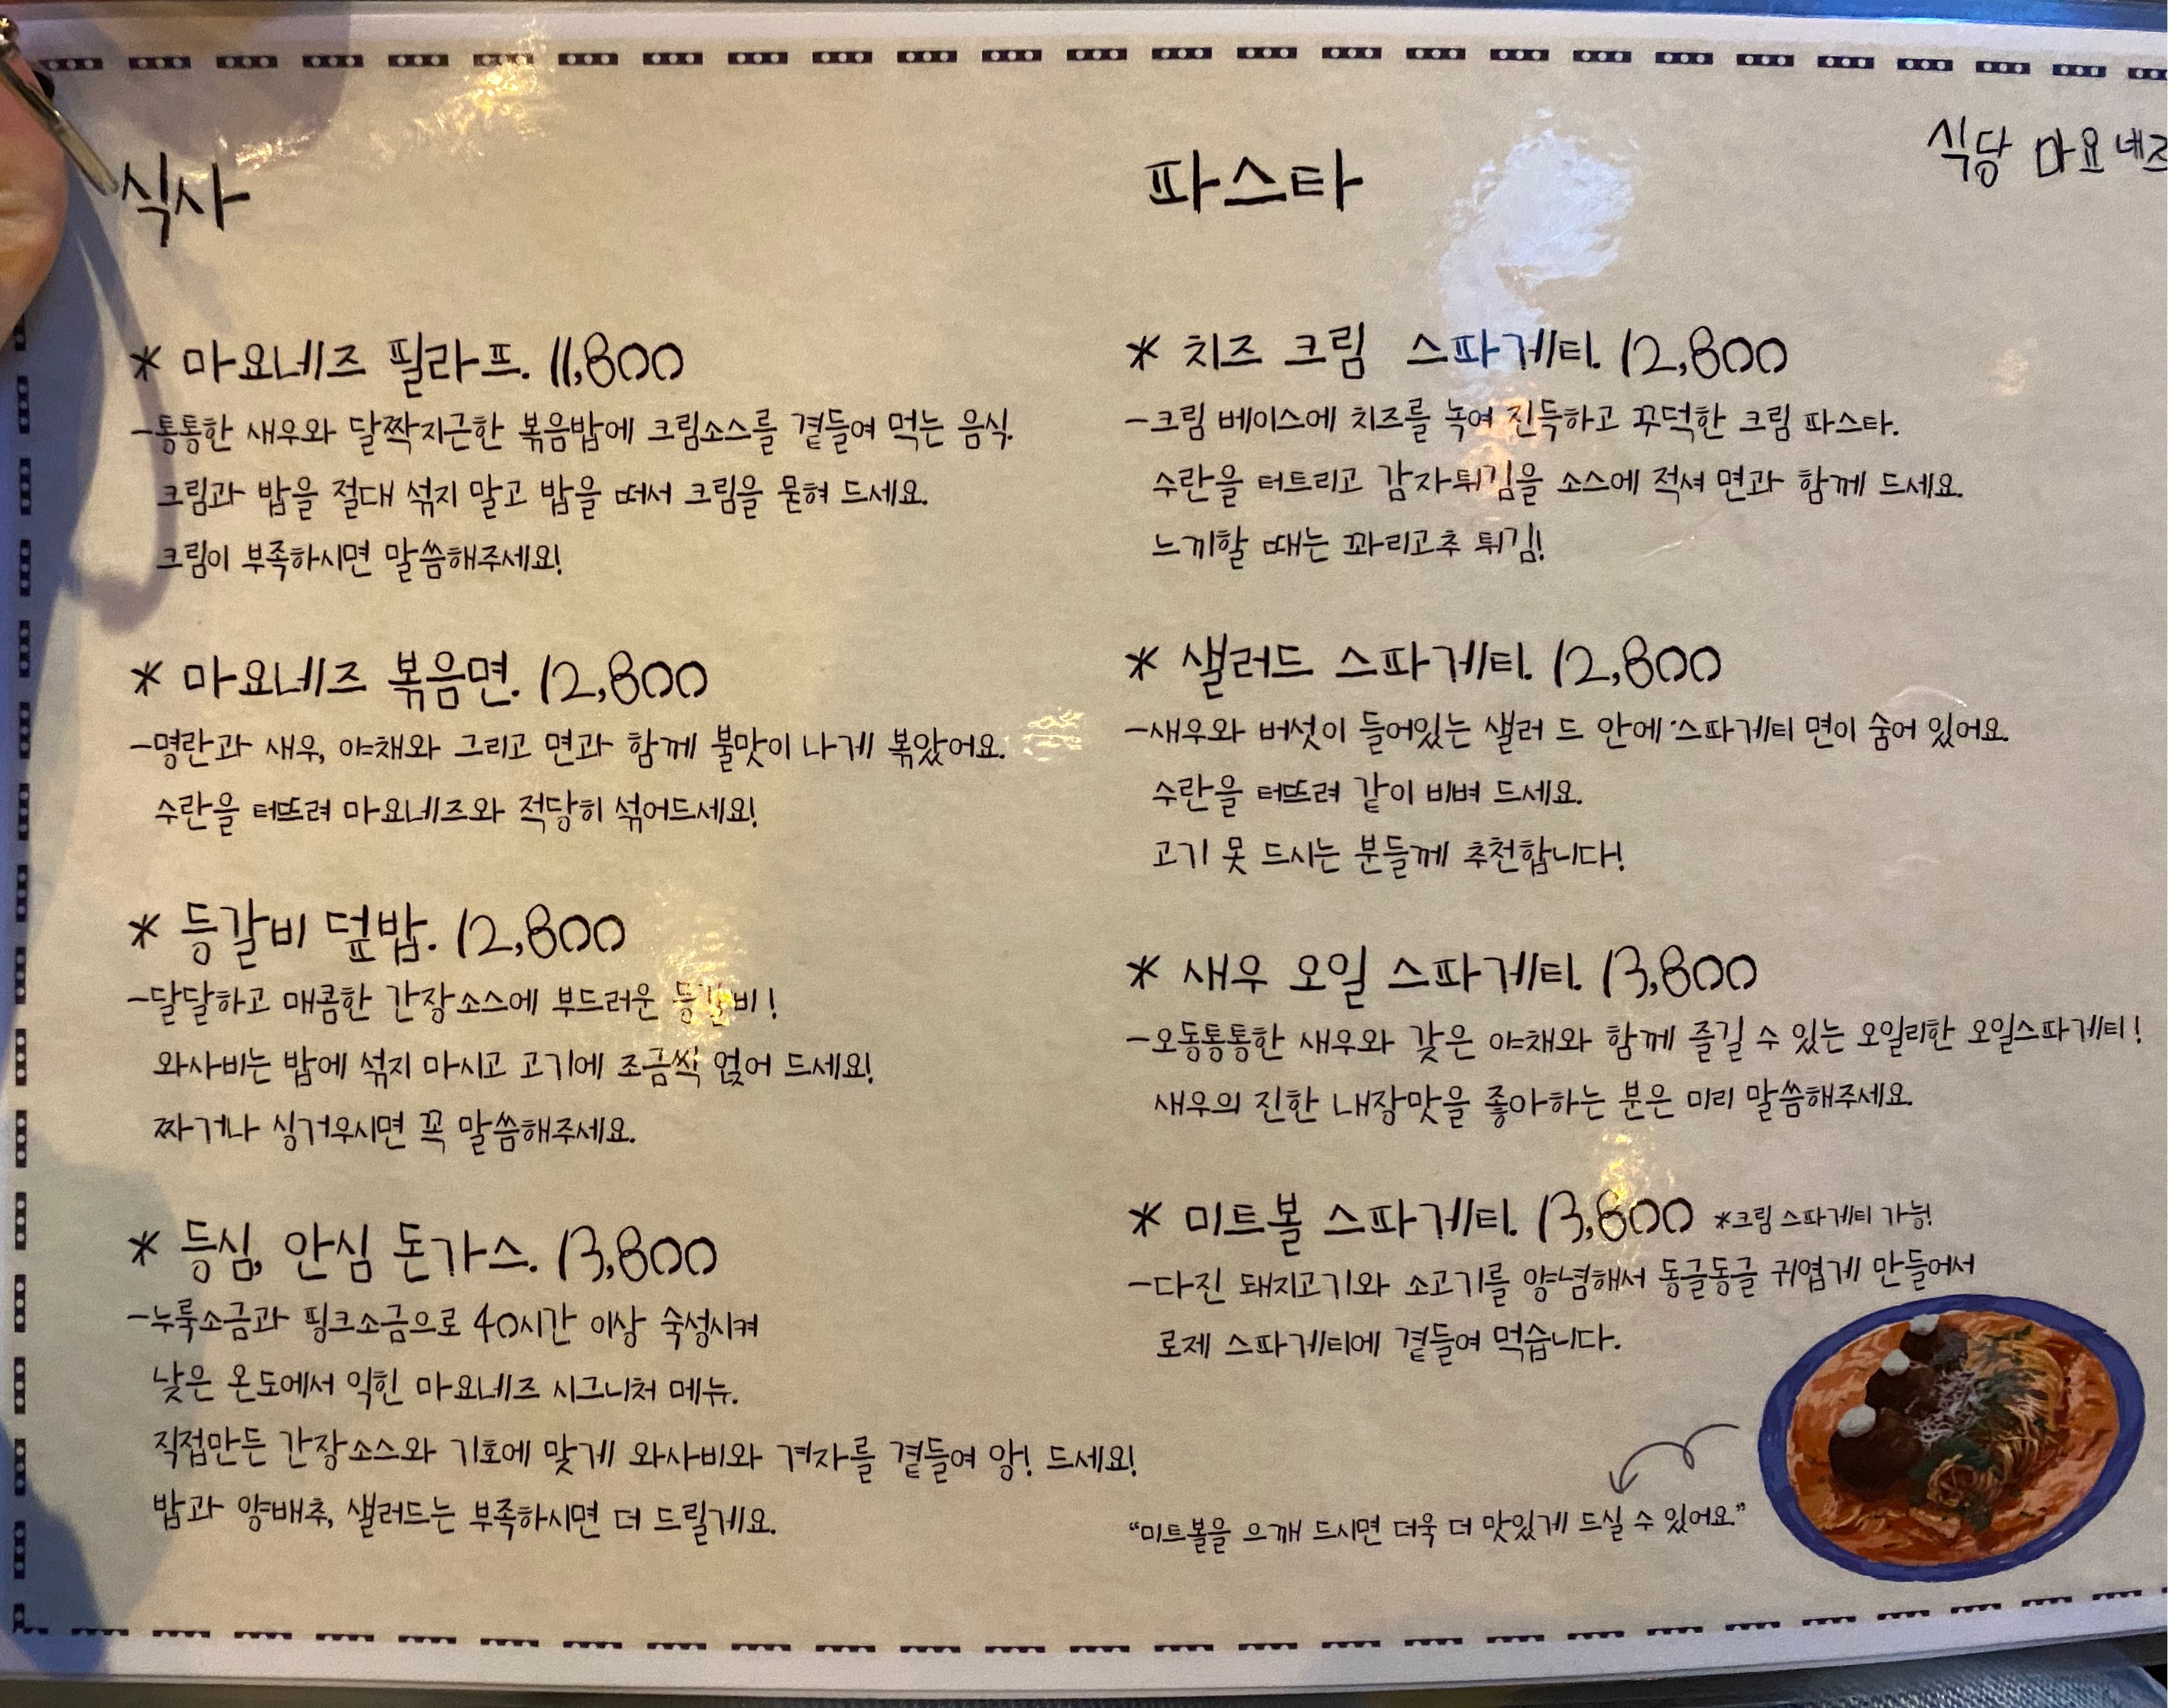 식당 마요네즈
식사
* 마요네즈 필라프. 11,800
-통통한 새우와 달짝지근한 볶음밥에 크림소스를 곁들여 먹는 음식.
크림과 밥을 절대 섞지 말고 밥을 떠서 크림을 묻혀 드세요.
크림이 부족하시면 말씀해주세요!
* 마요네즈 볶음면. 12,800
-명란과 새우, 야채와 그리고 면과 함께 불맛이 나게 볶았어요.
수란을 터뜨려 마요네즈와 적당히 섞어드세요!
* 등갈비 덮밥. 12,800
-달달하고 매콤한 간장소스에 부드러운 등갈비!
와사비는 밥에 섞지 마시고 고기에 조금씩 얹어 드세요!
짜거나 싱거우시면 꼭 말씀해주세요.
* 등심, 안심 돈가스. 13,800
-누룩소금과 핑크소금으로 40시간 이상 숙성시켜
낮은 온도에서 익힌 마요네즈 시그니처 메뉴.
직접만든 간장소스와 기호에 맞게 와사비와 겨자를 곁들여 앙! 드세요!
밥과 양배추, 샐러드는 부족하시면 더 드릴게요.
파스타
* 치즈 크림 스파게티. 12,800
-크림 베이스에 치즈를 녹여 진득하고 꾸덕한 크림 파스타.
수란을 터트리고 감자튀김을 소스에 적셔 면과 함께 드세요.
느끼할 때는 꽈리고추 튀김!
* 샐러드 스파게티. 12,800
-새우와 버섯이 들어있는 샐러 드 안에 스파게티 면이 숨어 있어요.
수란을 터뜨려 같이 비벼 드세요.
고기 못 드시는 분들께 추천합니다!
* 새우 오일 스파게티. 13,800
-오동통통한 새우와 갖은 야채와 함께 즐길 수 있는 오일리한 오일스파게티!
새우의 진한 내장맛을 좋아하는 분은 미리 말씀해주세요.
* 미트볼 스파게티. 13,800 *크림 스파게티 가능!
-다진 돼지고기와 소고기를 양념해서 동글동글 귀엽게 만들어서
로제 스파게티에 곁들여 먹습니다.
“미트볼을 으깨 드시면 더욱 더 맛있게 드실 수 있어요.”